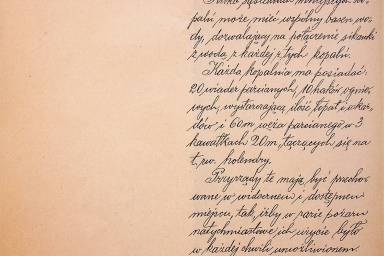 sąsiednich mniejszych ko-
palń może mieć wspólny basen wo-
dy, dozwalający na połączenie sikawki
z wodą z każdej z tych kopalń.
Każda kopalnia ma posiadać:
20 wiader parcianych, 10 haków ognio-
wych, wystarczającą ilość łopat i oskar-
dów i 60 m. węża parcianego w 3
kawałkach 20 m, łączących się na
t. zw. holendry.
Przyrządy te mają być przecho-
wane w widocznem i dostępnem
miejscu, tak, iżby w razie pożaru
natychmiastowe ich użycie było
w każdej chwili umożliwionem.